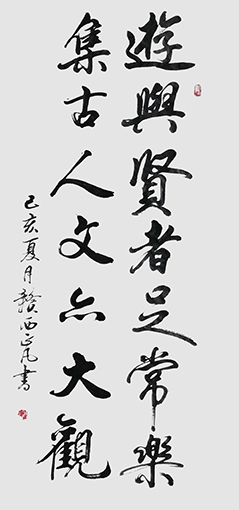 遊與賢者足常樂
集古人文亦大觀
己亥夏月贛西正凡書